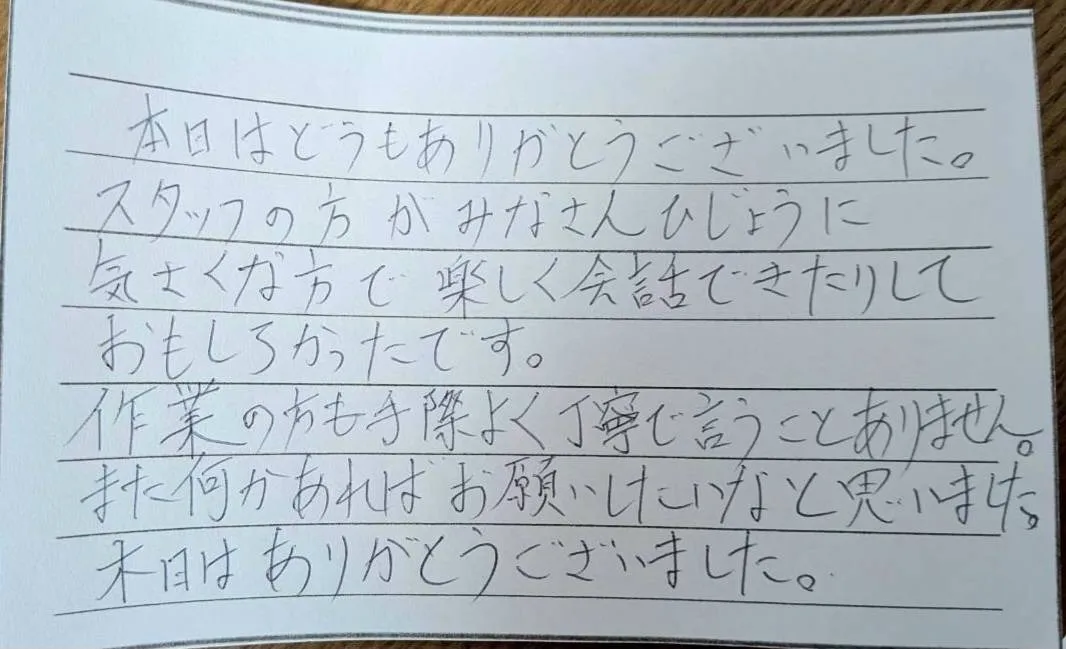 本日はどうもありがとうございました。
スタッフの方がみなさんひじょうに
気さくな方で楽しく会話できたりして
おもしろかったです。
作業の方も手際よく丁寧で言うことありません。
また何かあればお願いしたいなと思いました。
本日はありがとうございました。